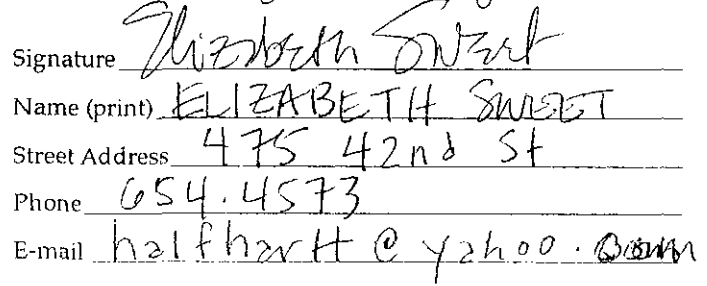 Signature Elizabeth Sweet
Name (print) ELIZABETH SWEET
Street Address 475 42nd St
Phone 654.4573
E-mail halfhartt@yahoo.com